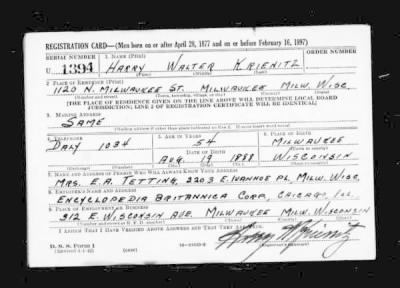 REGISTRATION CARD—(Men born on or after April 28, 1877 and on or before February 16, 1897)
SERIAL NUMBER 1. NAME (Print) ORDER NUMBER
U 1394 HARRY WALTER KRIENITZ
(First) (Middle) (Last)
2. PLACE OF RESIDENCE (Print)
1120 N. MILWAUKEE ST. MILWAUKEE MILW. WISC.
(Number and street) (Town, township, village, or city) (County) (State)
[THE PLACE OF RESIDENCE GIVEN ON THE LINE ABOVE WILL DETERMINE LOCAL BOARD
JURISDICTION; LINE 2 OF REGISTRATION CERTIFICATE WILL BE IDENTICAL]
3. MAILING ADDRESS
SAME
[Mailing address if other than place indicated on line 2. If same insert word same]
4. TELEPHONE 5. AGE IN YEARS 6. PLACE OF BIRTH
54 MILWAUKEE
DALY 1034 DATE OF BIRTH (Town or county)
AUG. 19 1888 WISCONSIN
(Exchange) (Number) (Mo.) (Day) (Yr.) (State or country)
7. NAME AND ADDRESS OF PERSON WHO WILL ALWAYS KNOW YOUR ADDRESS
MRS. E.A. TETTING, 2203 E. IVANHOE PL. MILW. WISC.
8. EMPLOYER'S NAME AND ADDRESS
ENCYCLOPAEDIA BRITANNICA CORP, CHICAGO, ILL.
9. PLACE OF EMPLOYMENT OR BUSINESS
312 E. WISCONSIN AVE. MILWAUKEE MILW. WISCONSIN
(Number and street or R. F. D. number) (Town) (County) (State)
I AFFIRM THAT I HAVE VERIFIED ABOVE ANSWERS AND THAT THEY ARE TRUE.
D. S. S. Form 1
(Revised 4-1-42) (over)